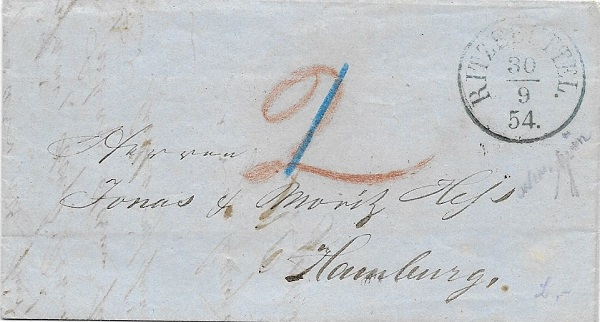 RITZEBÜTTEL.
30
9
54.
2
Herren
Jonas & Moritz Heſs
Hamburg.